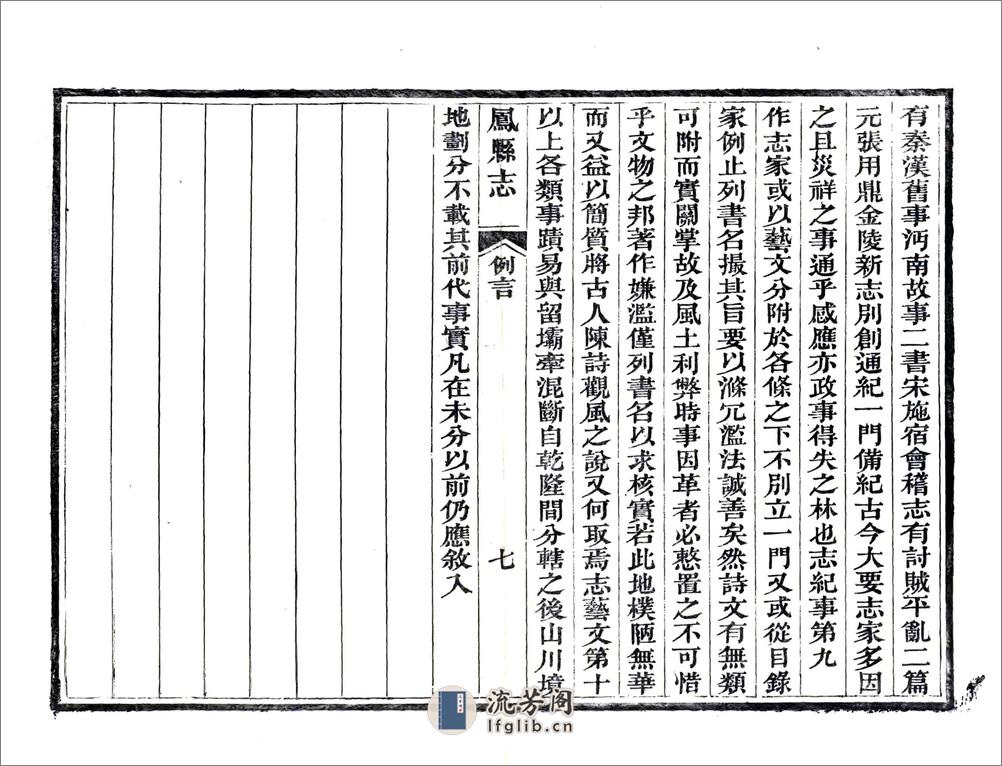 有秦漢舊事沔南故事二書宋施宿會稽志有討賊平亂二篇
元張用鼎金陵新志別創通紀一門備紀古今大要志家多因
之且災祥之事通乎感應亦政事得失之林也志紀事第九
作志家或以藝文分附於各條之下不別立一門又或從目錄
家例止列書名撮其旨要以滌冗濫法誠善矣然詩文有無類
可附而實關掌故及風土利弊時事因革者必憗置之不可惜
乎文物之邦著作嫌濫僅列書名以求核實若此地樸陋無華
而又益以簡質將古人陳詩觀風之說又何取焉志藝文第十
以上各類事蹟易與留壩牽混斷自乾隆間分轄之後山川境
鳳縣志 例言 七
地劃分不載其前代事實凡在未分以前仍應敘入
流芳閣
lfglib.cn